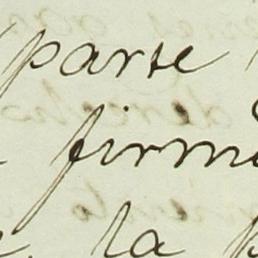 parte
firme
la p